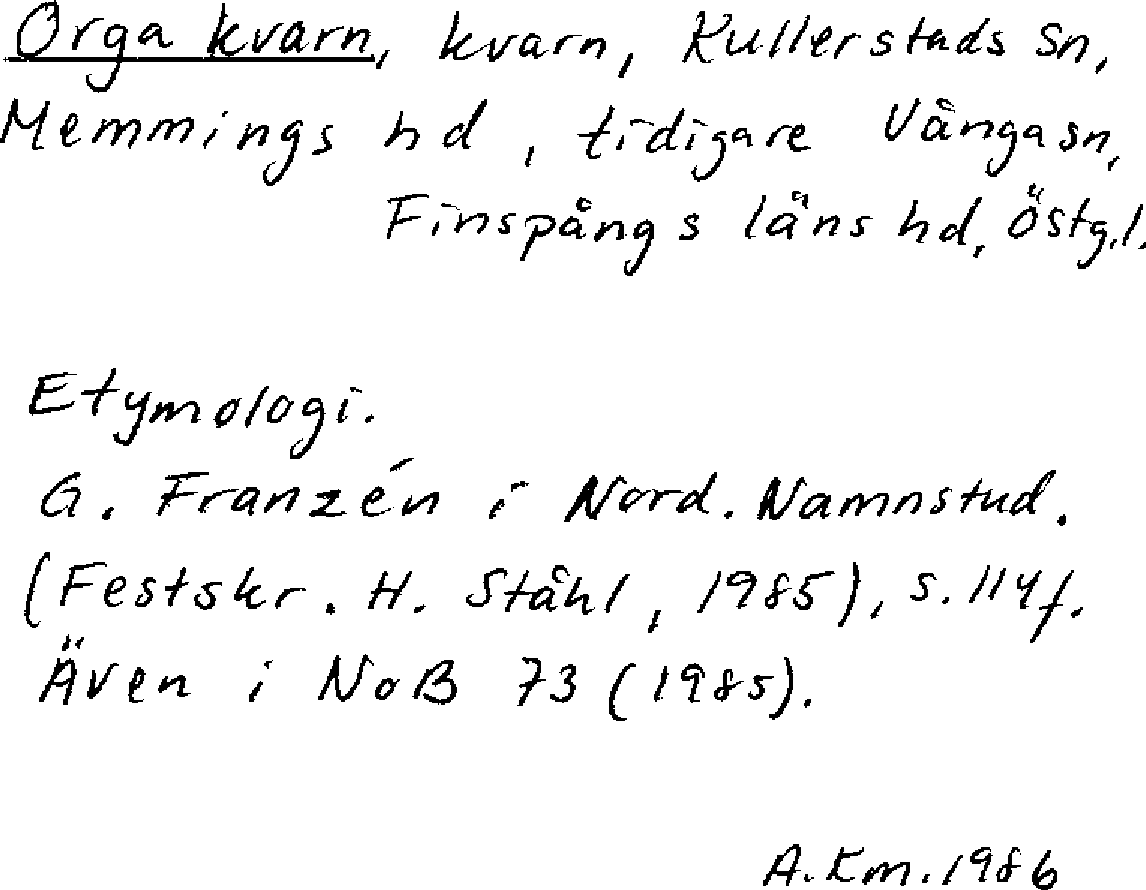 Orga kvarn, kvarn, Kullerstads sn,
Memmings hd, tidigare Vånga sn,
Finspångs läns hd, Östg.l.
Etymologi.
G. Franzén i Nord. Namnstud.
(Festskr. H. Ståhl, 1985), s. 114f.
Även i NoB 73 (1985).
A.Km.1986